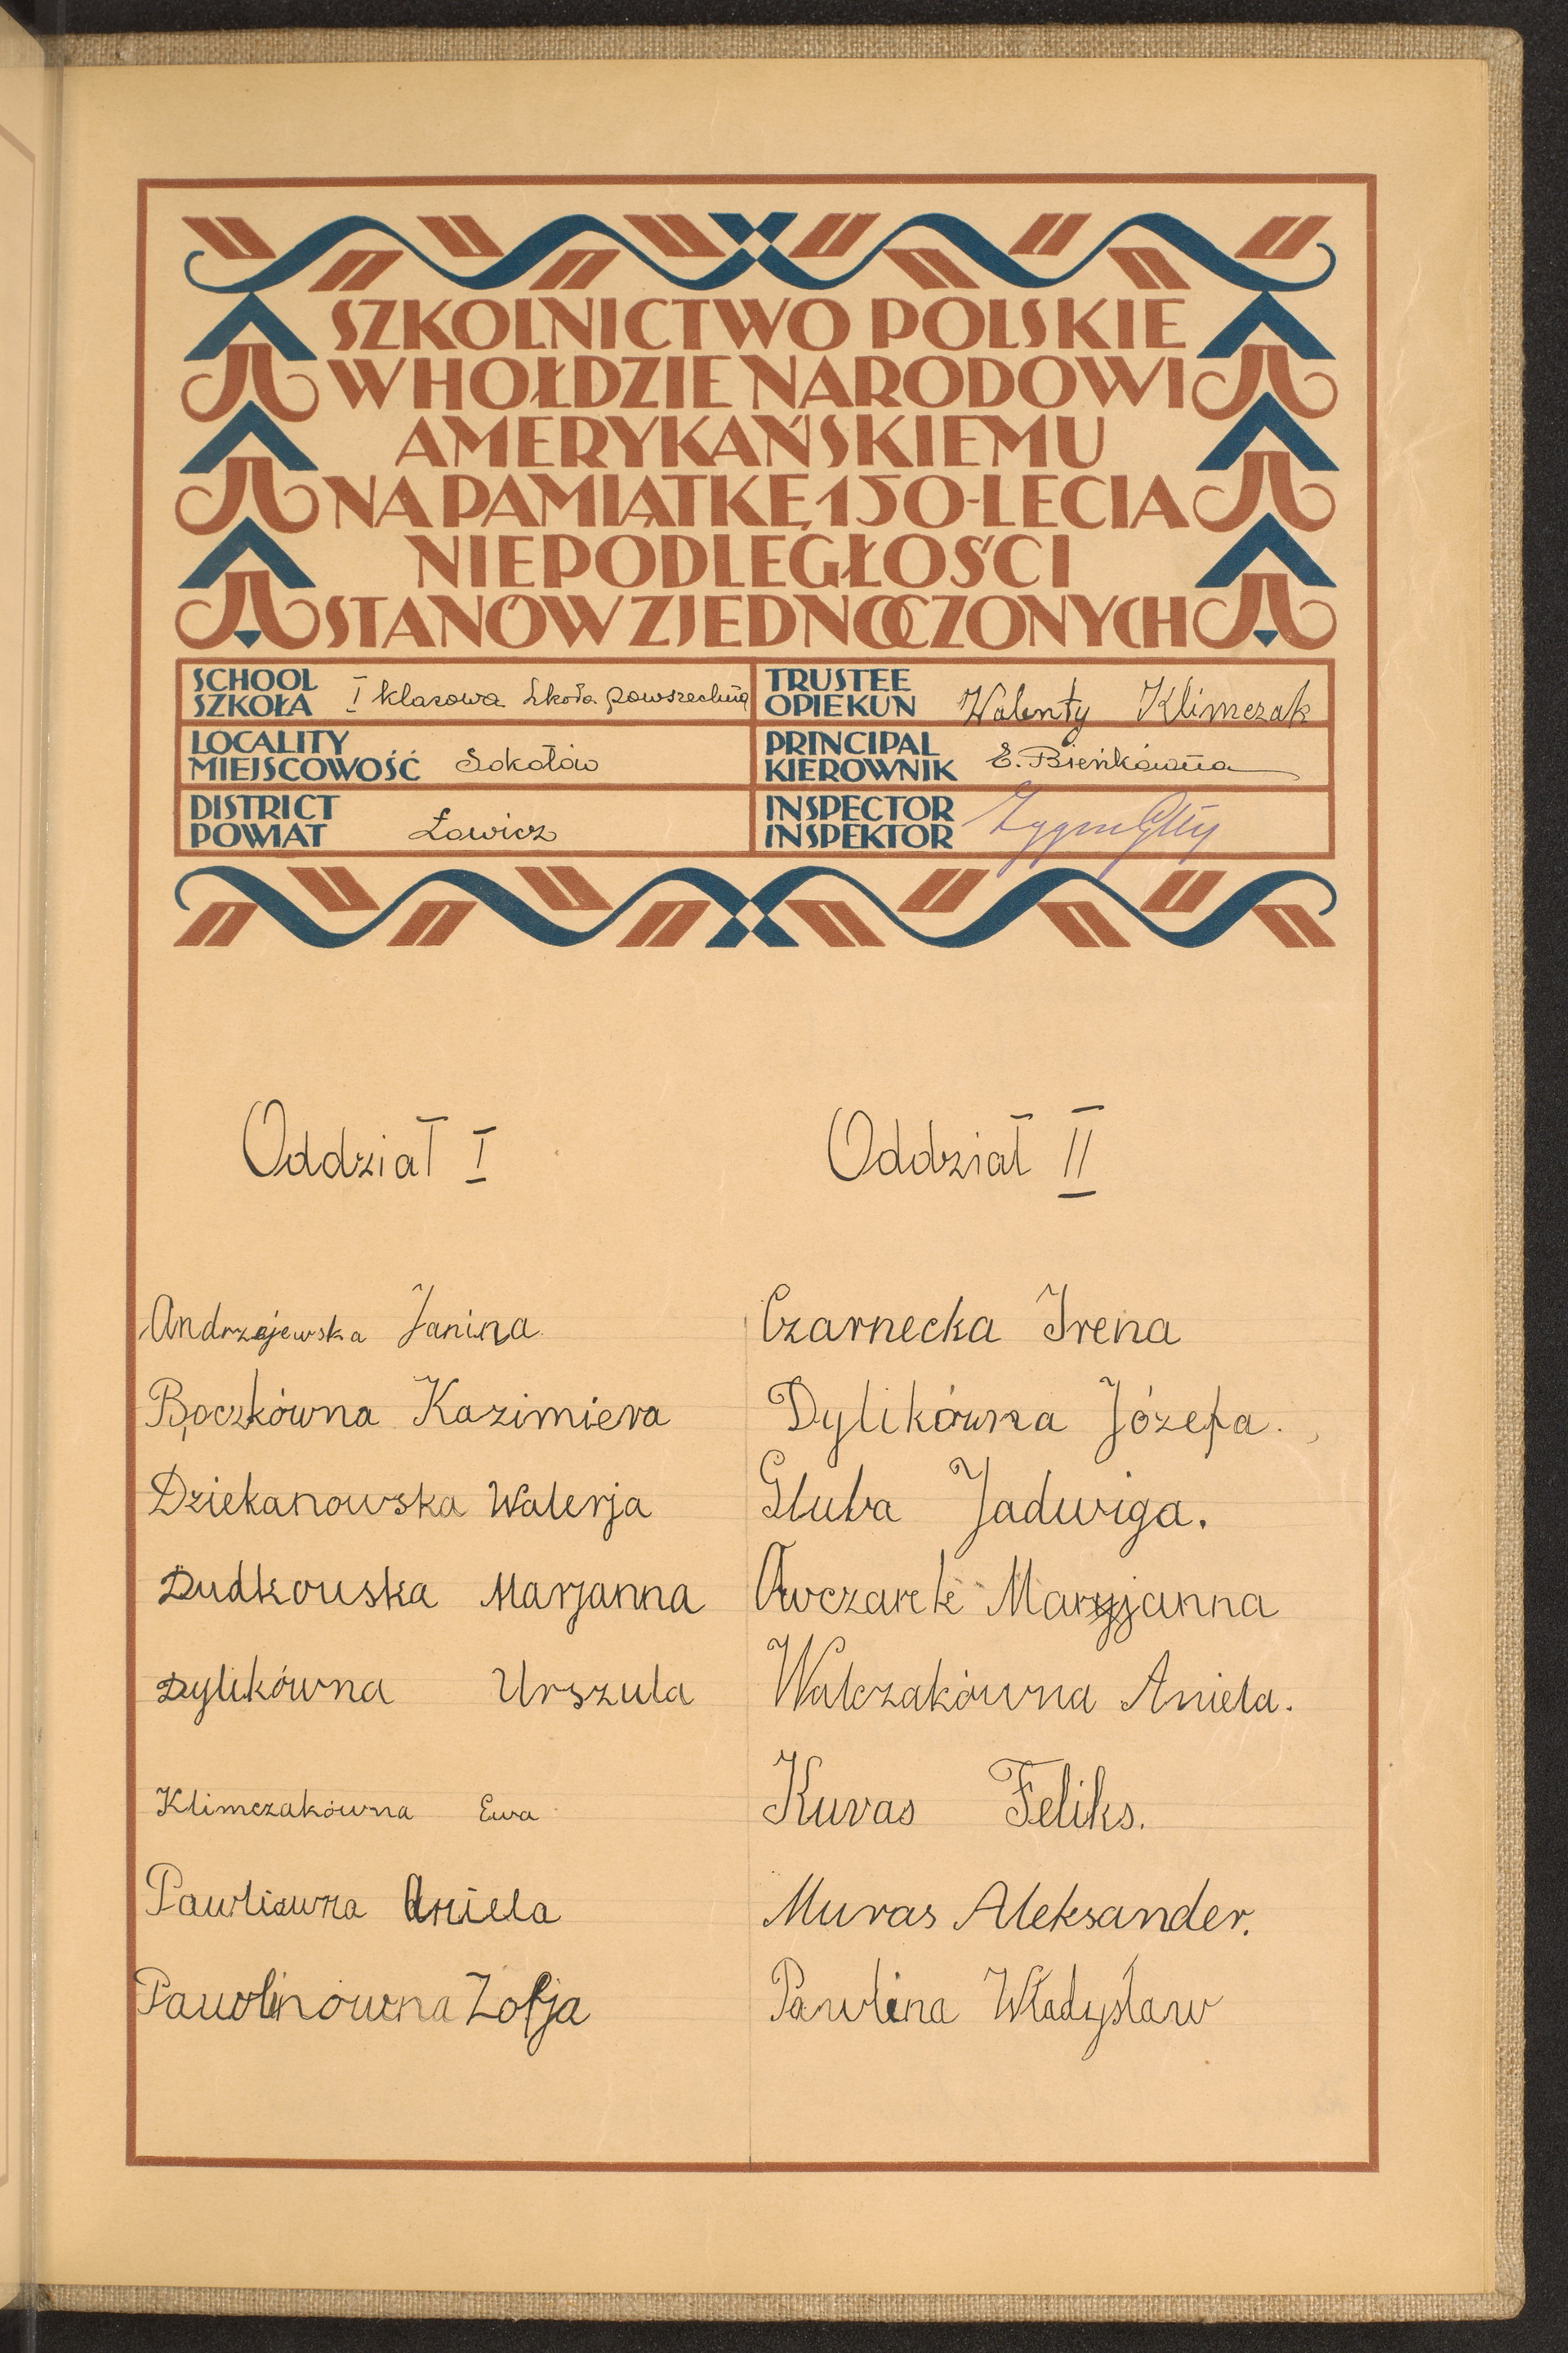 SZKOLNICTWO POLSKIE
W HOŁDZIE NARODOWI
AMERYKAŃSKIEMU
NA PAMIĄTKĘ 150-LECIA
NIEPODLEGŁOŚCI
STANÓW ZJEDNOCZONYCH
SCHOOL
SZKOŁA I klasowa Szkoła powszechna
TRUSTEE
OPIEKUN Walenty Klimczak
LOCALITY
MIEJSCOWOŚĆ Sokołów
PRINCIPAL
KIEROWNIK E. Bieńkówna
DISTRICT
POWIAT Łowicz
INSPECTOR
INSPEKTOR
Oddział I
Andrzejewska Janina
Bączkówna Kazimiera
Dziekanowska Walerja
Dudkouska Marjanna
Dylikówna Urszula
Klimczakówna Ewa
Aniela
Pawlinówna Zofja
Oddział II
Czarnecka Irena
Dylikówna Józefa.
Gluba Jadwiga.
Owczarek Maryjanna
Walczakówna Aniela.
Kuras Feliks.
Muras Aleksander.
Pawlina Władysław